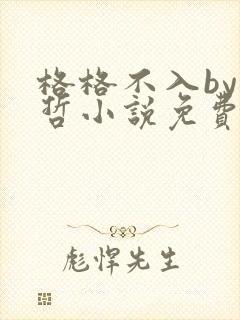 格格不入by
哲小說免費
彪悍先生